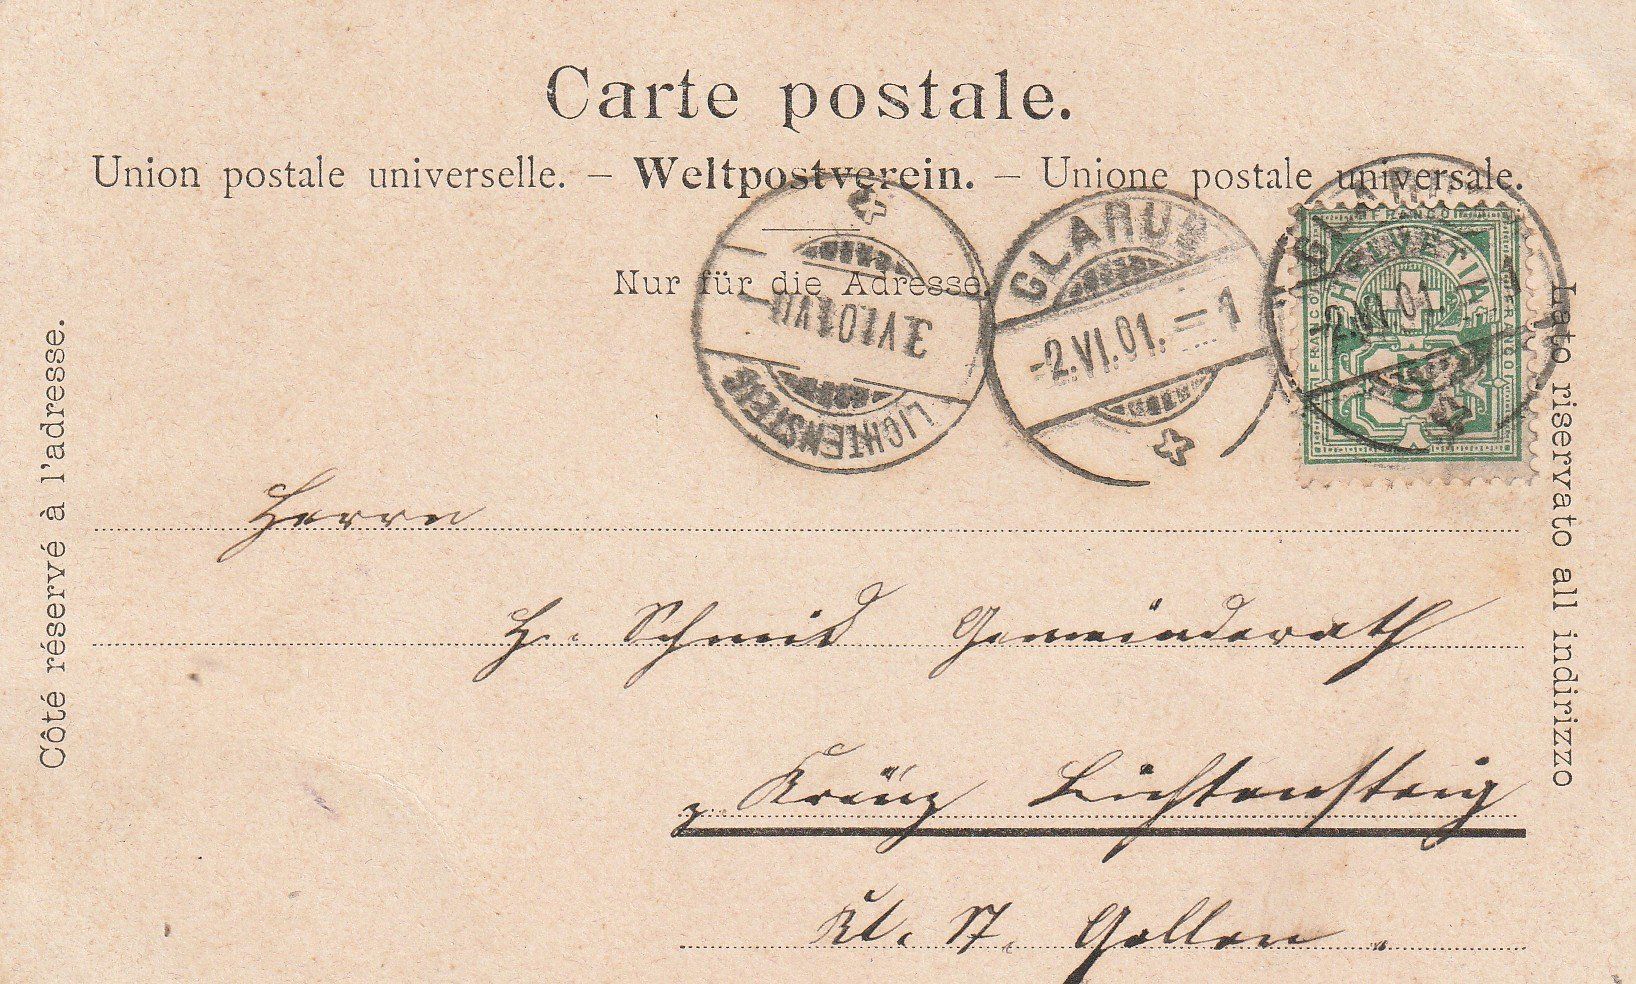 Carte postale.
Union postale universelle. – Weltpostverein. – Unione postale universale.
Nur für die Adresse.
Côté réservé à l'adresse.
Lato riservato all indirizzo
LICHTENSTEIG
3.VI.01.VII
GLARUS
-2.VI.01. = 1
FRANCO
HELVETIA
FRANCO
FRANCO
5
Herrn
H. Schmid Gemeinderath
z. Kräuz Lichtensteig
Kt. St. Gallen.